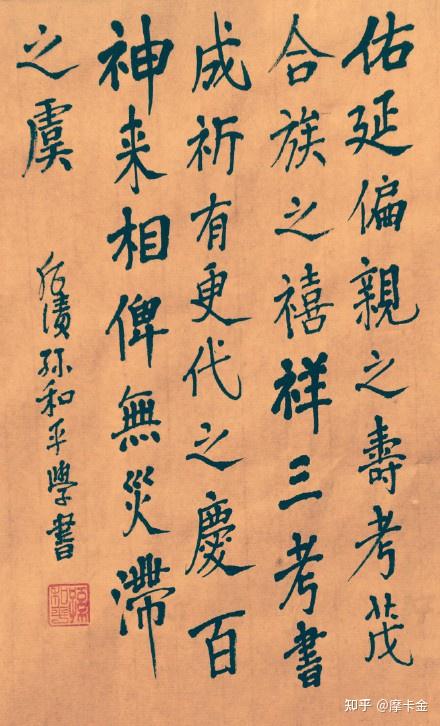 佑延偏親之壽考茂
合族之禧祥三考書
成祈有更代之慶百
神来相俾無災滯
之虞
孙和平學書
知乎 @摩卡金